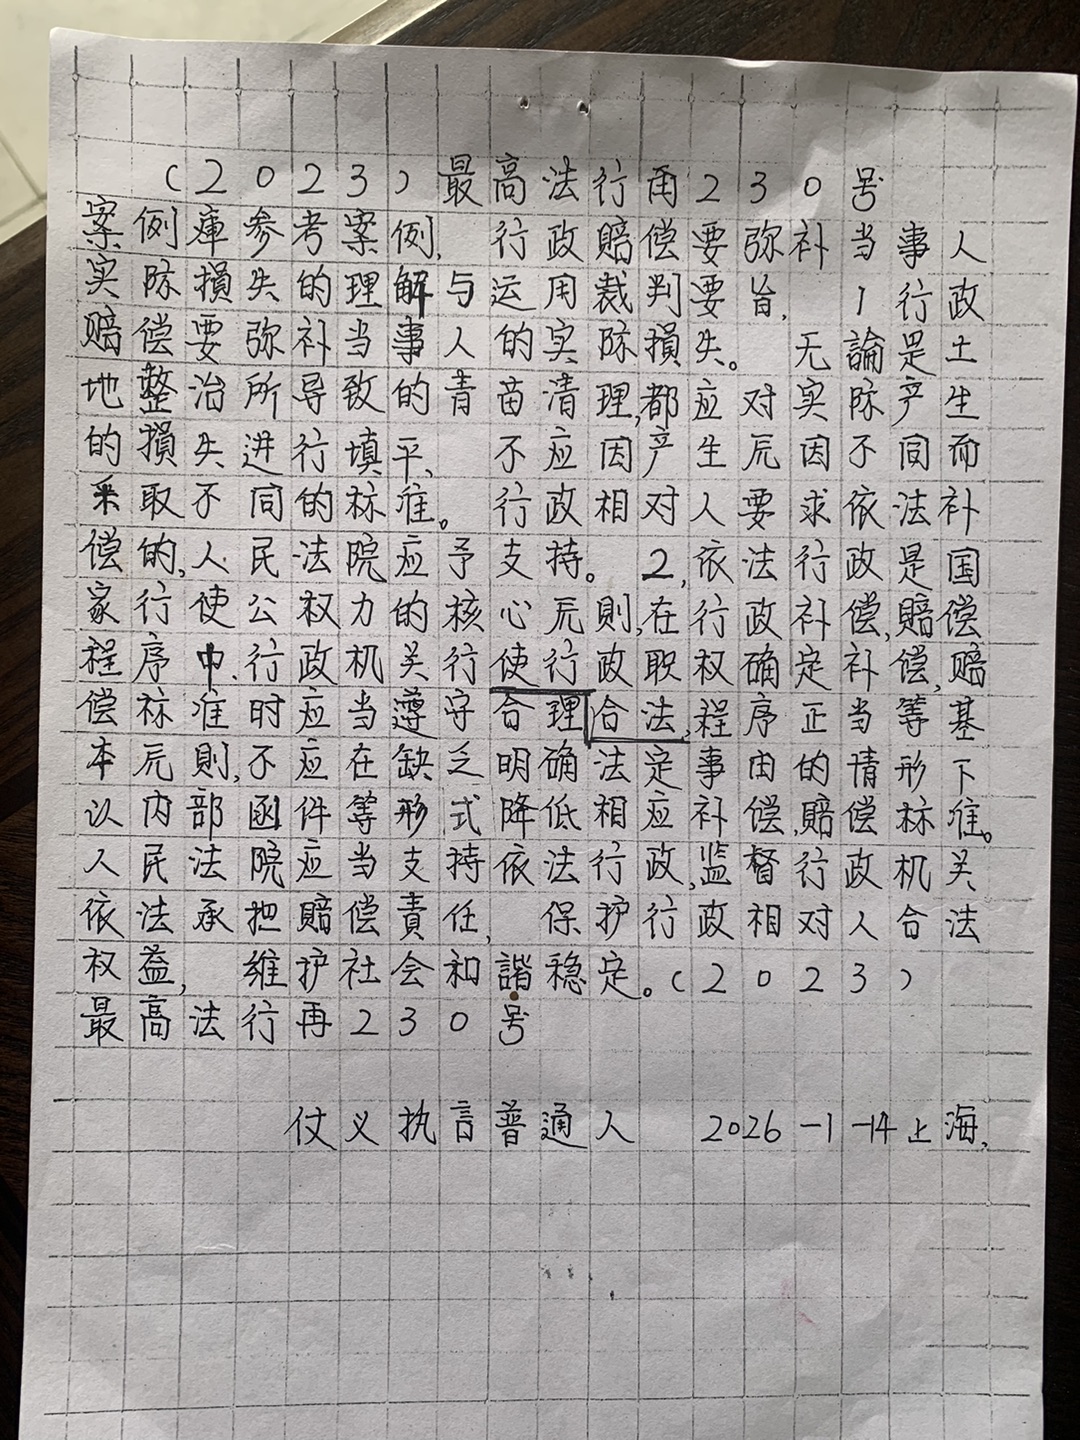 （2023）最高法行再230号
案例庫参考案例，行政赔偿要弥补当事人
实际損失的理解与运用裁判要旨，1行政
赔偿要弥补当事人的实际損失。无論是土
地整治所导致的青苗清理，都应对实际产生
的損失进行填平，不应因产生原因不同而
采取不同的标准。行政相对人要求依法补
偿的，人民法院应予支持。2，依法行政是国
家行使公权力的核心原則，在行政补偿，赔偿
程序中，行政机关行使行政职权确定补偿，赔
偿标准时应当遵守合理合法，程序正当等基
本原則，不应在缺乏明确法定事由的情形下
以内部函件等形式降低相应补偿，赔偿标准。
人民法院应当支持依法行政，监督行政机关
依法承担赔偿責任，保护行政相对人合法
权益，维护社会和諧稳定。（2023）
最高法行再230号
仗义执言普通人 2026-1-14上海，